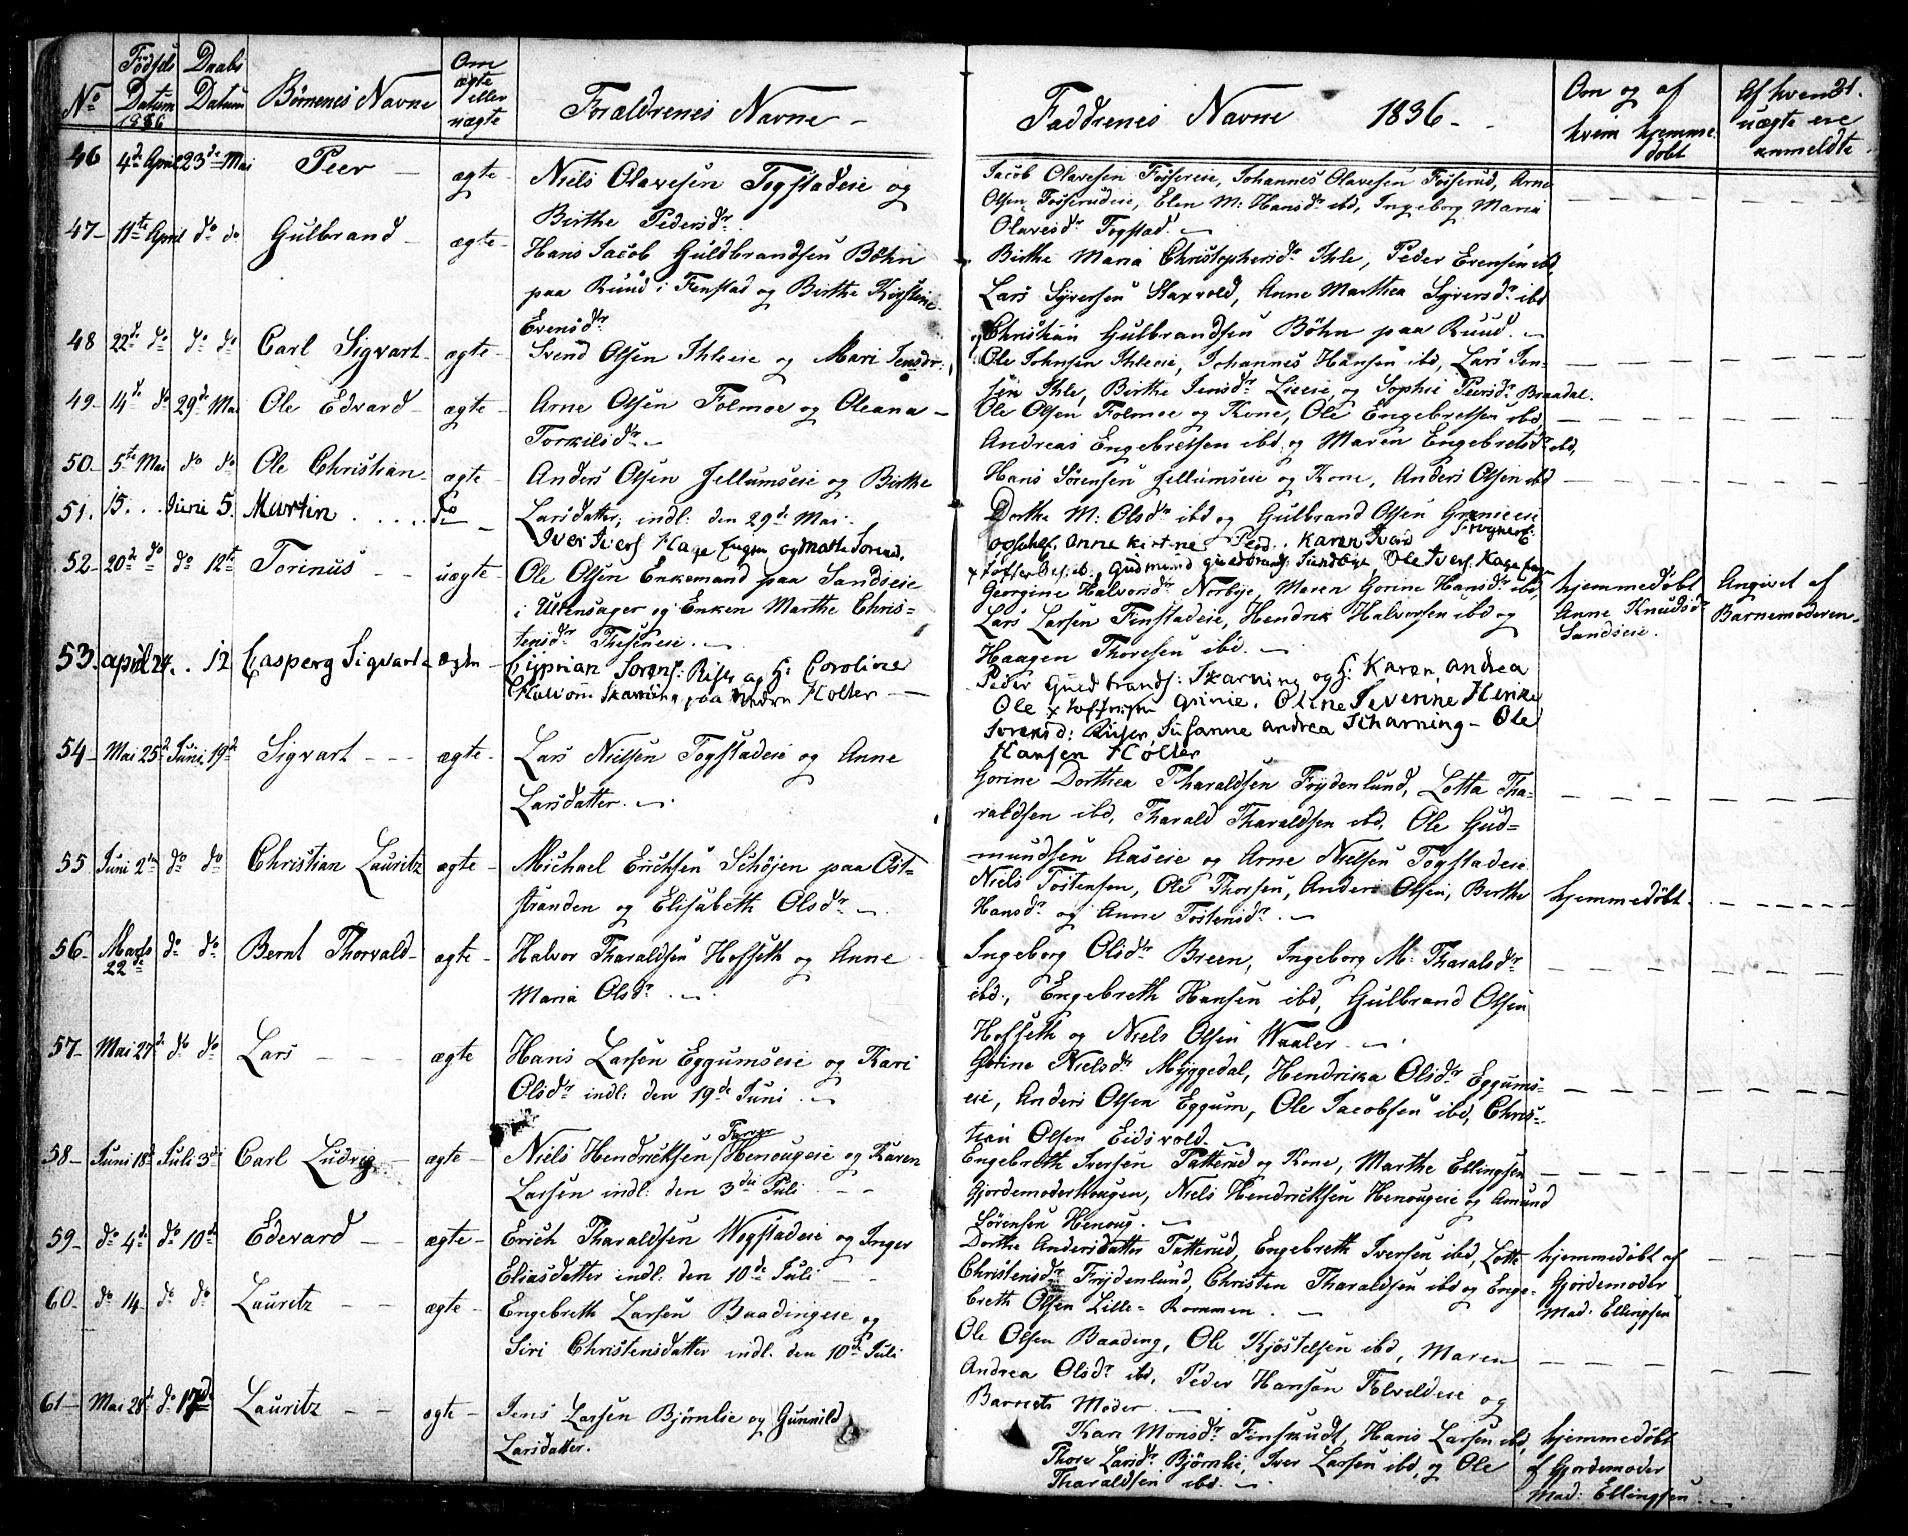 No Fødsels Datum 1836 Daabs Datum Børnenes Navne Om ægte eller uægte Forældrenes Navne - Faddrenes Navne 1836 - - Om og af hvem hjemmedøbt Af hvem uægte ere anmeldte 31.
46 4de April 23de Mai Peer - ægte - Niels Olavesen Togstadeie og
Birthe Pedersdr.
Jacob Olavesen Fossereie, Johannes Olavesen Fosserud, Arne
Olsen Fosserudeie, Elen M: Hansdr ibd, Ingeborg Maria
Olavesdr Togstad.
47 - 11te April do do Gulbrand - ægte - Hans Jacob Guldbrandsen Bøhn
paa Ruud i Fenstad og Birthe Kirstine
Evensdr
Birthe Maria Christophersdr Ihle, Peder Evensen ibd
Lars Syversen Haxvold, Anne Marthea Syversdr ibd
Christian Gulbrandsen Bøhn paa Ruud.
48 22de do do do Carl Sigvart - ægte - Svend Olsen Ihleeie og Mari Jensdr.
Ole Johnsen Ihleeie, Johannes Hansen ibd, Lars Jen-
sen Ihle, Birthe Jensdr Lieeie, og Sophie Peersdr Braadal.
49 - 14de do 29de Mai Ole Edvard - ægte - Arne Olsen Folmoe og Oleana -
Torkilsdr
Ole Olsen Folmoe og Kone, Ole Engebretsen ibd,
Andreas Engebretsen ibd og Maren Engebretsdr ibd,
50 - 5te Mai do do Ole Christian - ægte - Anders Olsen Jellumseie og Birthe
Larsdatter, indl: den 29de Mai.
Hans Sørensen Jellumseie og Kone, Anders Olsen ibd
Dorthe M: Olsdr ibd og Gulbrand Olsen
51. 15. . . Juni 5. Martin . . . . do - Iver Ivers Hage og Mathe
Anne Kirtine Karen
Gudmund Ole Ivers. Hage
52 - 20de do do 12te Torinus - - uægte - Ole Olsen Enkemand paa Sandseie
i Ullensager og Enken Marthe Chris-
tensdr
Georgine Halvorsdr Norbye, Maren Gorine Hansdr ibd,
Lars Larsen Finstadeie, Hendrik Halvorsen ibd og
Haagen Thoresen ibd.
hjemmedøbt
Anne Knudsdr
Sandseie.
Angivet af
Barnemoderen.
53. april 24. . 12 Casperg Sigvart ægte - Cyprian Sørens: Riser og H: Caroline
Skarning paa Holter -
Peder Guldbrands: Skarning og H: Karen, Andrea
Ole Grinie. Oline Tevenne
Sorensd: Riser, Susanne Andrea Skarning - Ole
Hansen Holter
54 - Mai 25de Juni 19de Sigvart - - - ægte - Lars Nielsen Togstadeie og Anne
Larsdatter.
Gorine Dorthea Tharaldsen Frydenlund, Lotta Tha-
raldsen ibd, Tharald Tharaldsen ibd, Ole Gud=
mundsen Aaseie og Arne Nielsen Togstadeie
55 Juni 2den do do Christian Lauritz ægte - Michael Ericksen Schøjen paa Ost=
stranden og Elisabeth Olsdr
Niels Tostensen, Ole Thorsen, Anders Olsen, Birthe
Hansdr og Anne Tostensdr.
hjemmedøbt.
56 - Marts 22de do do Bernt Thorvald - ægte - Halvor Tharaldsen Hofseth og Anne
Maria Olsdr.
Ingeborg Olsdr Breen, Ingeborg M: Tharalsdr
ibd., Engebreth Hansen ibd, Gulbrand Olsen
Hofseth og Niels Olsen Waaler.
57 - Mai 27de do do Lars - - - ægte Hans Larsen Eggumseie og Kari
Olsdr indl: den 19de Juni
Gorine Nielsdr Myggedal, Hendrika Olsdr Eggums-
eie, Anders Olsen Eggum, Ole Jacobsen ibd, Chris-
tian Olsen Eidsvold.
58 - Juni 18de Juli 3die Carl Ludvig - ægte - Niels Hendricksen /Farver Henougeie og Karen
Larsen indl: den 3die Juli
Engebreth Iversen Tatterud og Kone, Marthe Ellingsen
Gjordemoderhougen, Niels Hendricksen Henougeie og Amund
Sørensen Henoug.
59 - do 4de do 10de Edevard - - ægte - Erich Tharaldsen Wogstadeie og Inger
Eliasdatter indl: den 10de Juli
Dorthe Andersdatter Tatterud, Engebreth Iversen ibd, Lotte
Christensdr Frydenlund, Christen Tharaldsen ibd og Enge-
breth Olsen Lille=Rommen.
hjemmedøbt af
Gjordemoder
Mad: Ellingsen
60 - do 14 do do Lauritz - - ægte - Engebreth Larsen Baadingeie og
Siri Christensdatter indl. den 10de Juli
Ole Olsen Baading, Ole Kjøstelsen ibd, Maren
Andrea Olsdr ibd, Peder Hansen Folvildeie og
Barnets Moder
61 - Mai 28de do 17de Lauritz - - ægte - Jens Larsen Bjørnlie og Gunnild
Larsdatter.
Kari Monsdr Finskudt, Hans Larsen ibd,
Thore Larsdr Bjørnlie, Iver Larsen ibd, og Ole
Tharaldsen ibd.
hjemmedøbt
af Gjordemoder
Mad: Ellingsen